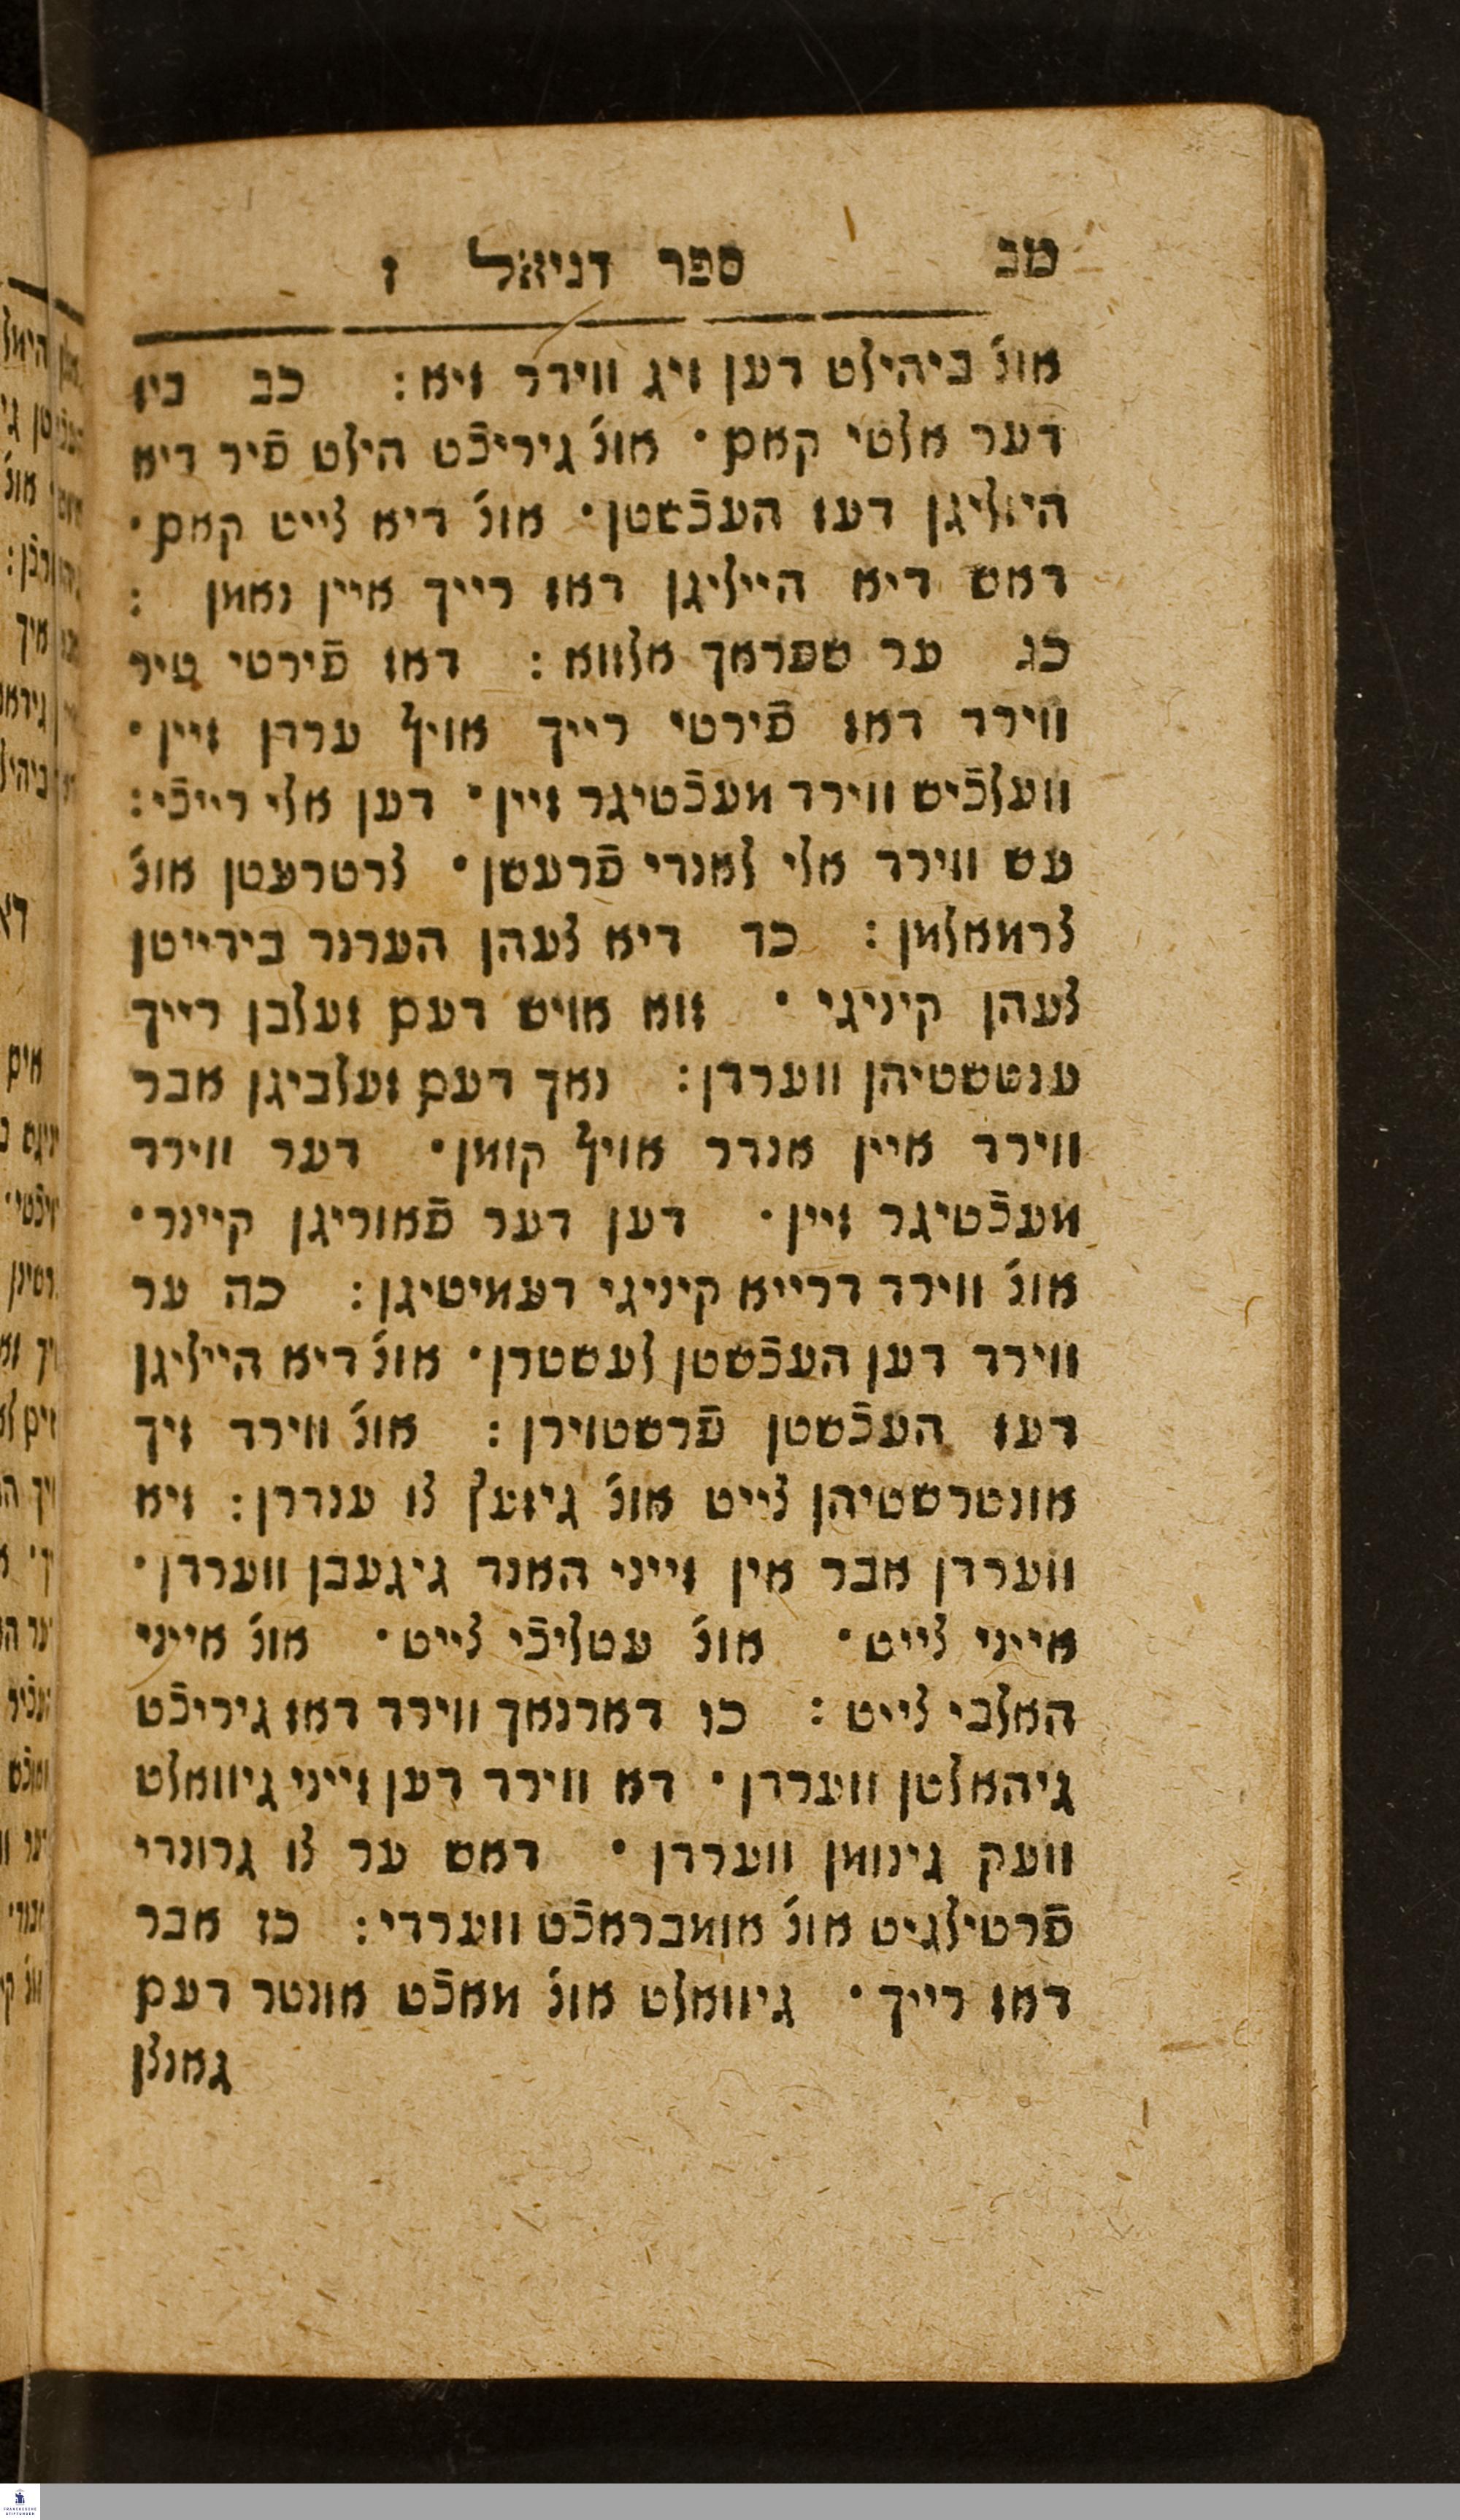 מב ספר דניאל ז
אונ' ביהילט דען זיג ווידר זיא: כב ביז
דער אלטי קאם· אונ' גיריכֿט הילט פֿיר דיא
הייליגן דעז העכֿשטן· אונ' דיא צייט קאם·
דאש דיא הייליגן דאז רייך איין נאמן :
כג ער שפראך אלזוא: דאז פֿירטי טיר
ווירד דאז פֿירטי רייך אויף ערדן זיין·
וועלכֿיש ווירד מעכֿטיגר זיין· דען אלי רייכֿי:
עש ווירד אלי לאנדי פֿרעשן· צרטרעטן אונ'
צרמאלמן: כד דיא צעהן הערנר בידייטן
צעהן קיניגי · זוא אויש דעם זעלבן רייך
ענטשטיהן ווערדן: נאך דעם זעלביגן אבר
ווירד איין אנדר אויף קומן· דער ווירד
מעכֿטיגר זיין· דען דער פֿאוריגן קיינר·
אונ' ווירד דרייא קיניגי דעמיטיגן: כה ער
ווירד דען העכֿשטן לעשטרן· אונ' דיא הייליגן
דעז העכֿשטן פֿרשטוירן: אונ' ווירד זיך
אונטרשטיהן צייט אונ' גיזעץ צו ענדרן: זיא
ווערדן אבר אין זייני האנד גיגעבן ווערדן·
אייני צייט· אונ' עטליכֿי צייט· אונ' אייני
האלבי צייט: כו דארנאך ווירד דאז גיריכֿט
גיהאלטן ווערדן· דא ווירד דען זייני גיוואלט
וועק גינומן ווערדן · דאש ער צו גרונדי
פֿרטילגיט אונ' אומבראכֿט ווערדי: כז אבר
דאז רייך· גיוואלט אונ' מאכֿט אונטר דעם
גאנצן